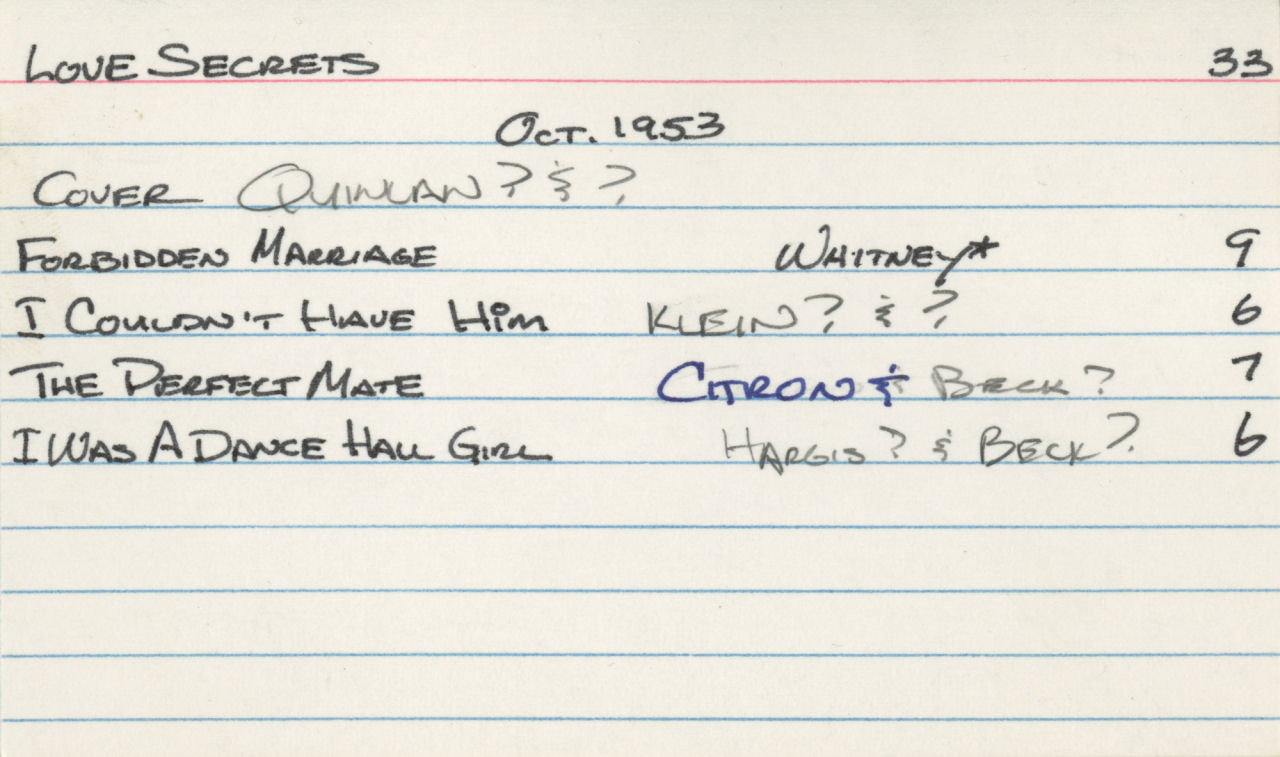 LOVE SECRETS 33
OCT. 1953
COVER QUINLAN ? & ?
FORBIDDEN MARRIAGE WHITNEY* 9
I COULDN'T HAVE HIM KLEIN ? & ? 6
THE PERFECT MATE CITRON & BECK ? 7
I WAS A DANCE HALL GIRL HARGIS ? & BECK ? 6